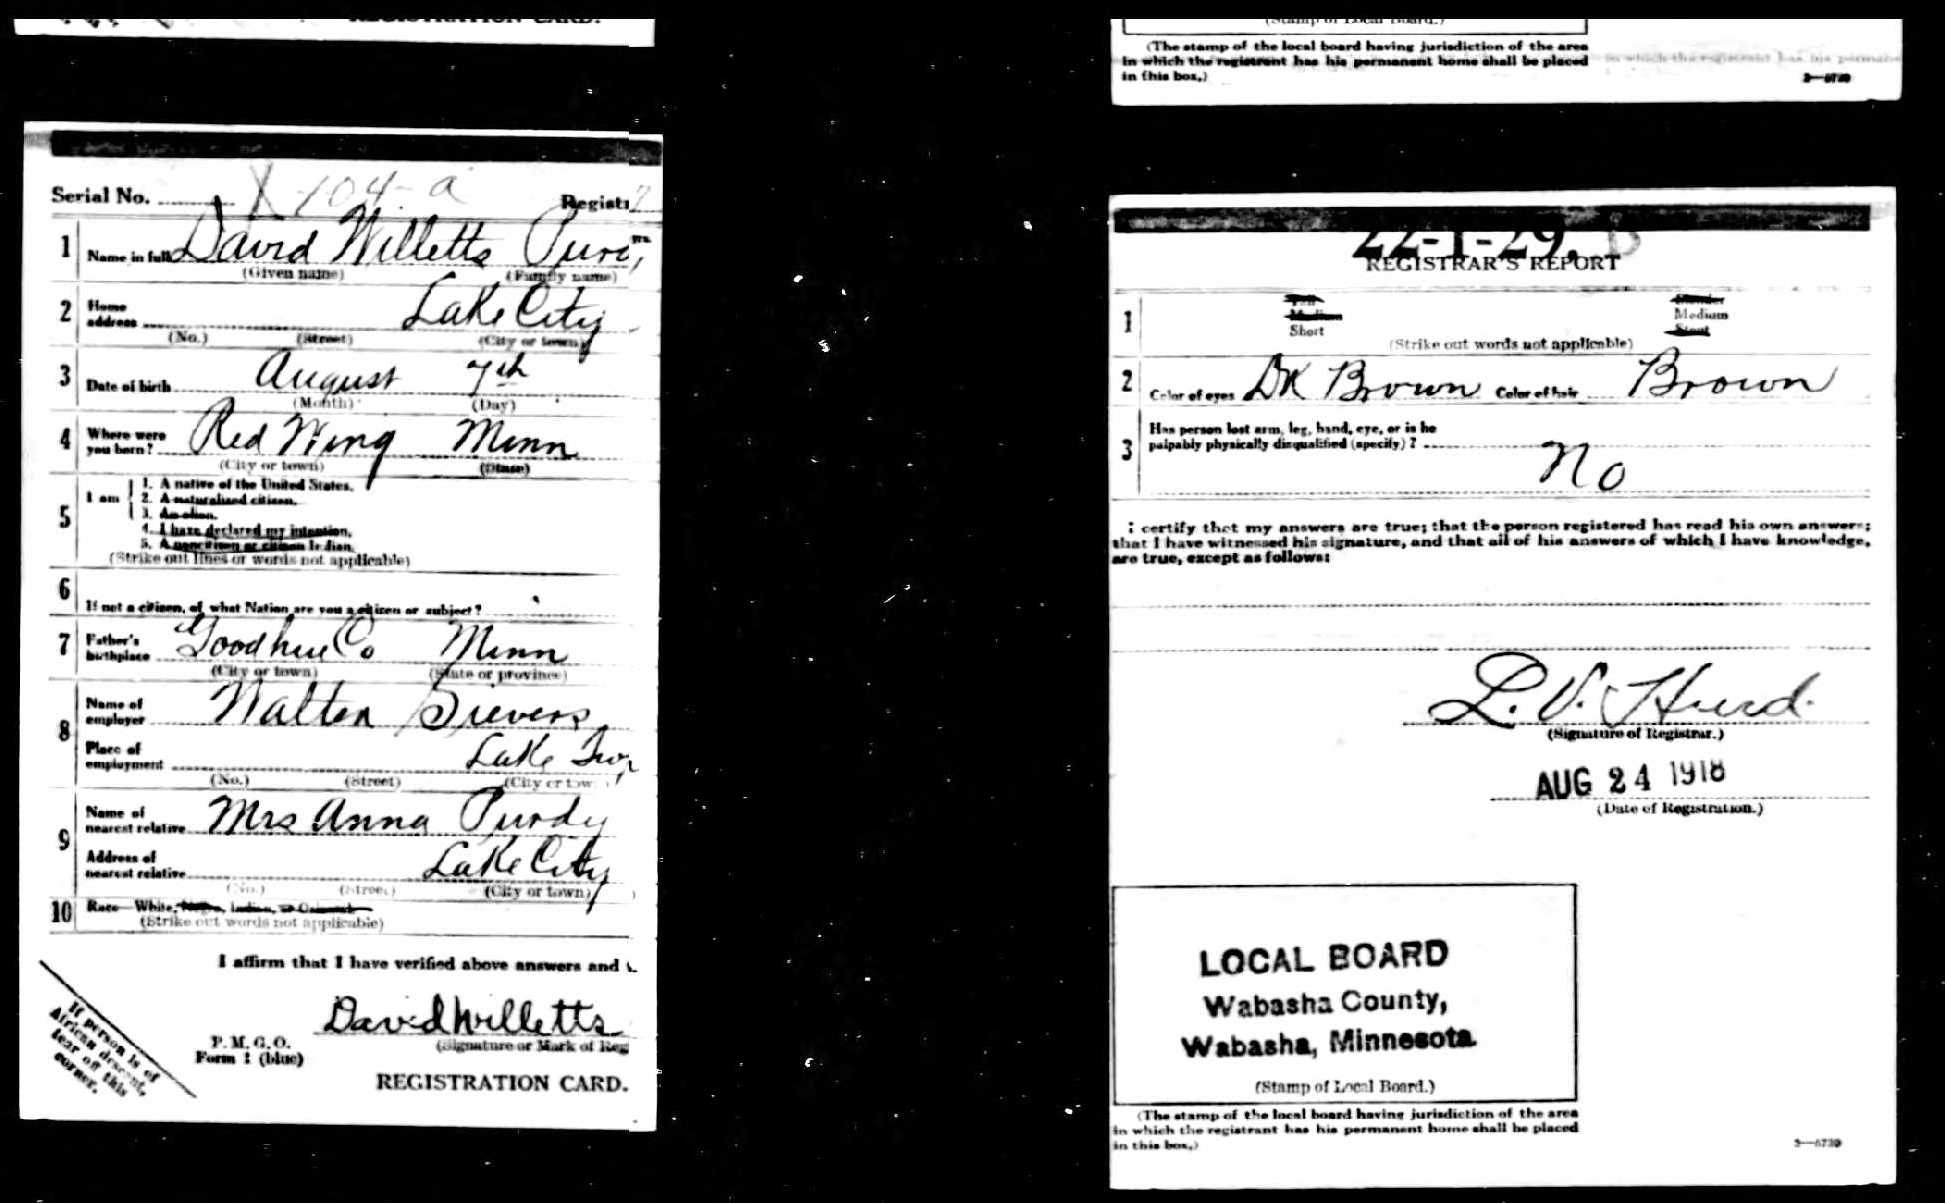 REGISTRATION CARD.
Serial No. 104-a Regist
1 Name in full David Willetts
(Given name) (Family name)
2 Home address Lake City
(No.) (Street) (City or town)
3 Date of birth August 7th
(Month) (Day)
4 Where were you born? Red Wing Minn
(City or town) (State)
5 I am
1. A native of the United States.
2. A naturalized citizen.
3. An alien.
4. I have declared my intention.
5. A noncitizen or citizen Indian.
(Strike out lines or words not applicable)
6 If not a citizen, of what Nation are you a citizen or subject?
7 Father's birthplace Goodhue Co Minn
(City or town) (State or province)
8 Name of employer Walter Sievers
Place of employment Lake
(No.) (Street) (City or tow
9 Name of nearest relative Mrs Anna Purdy
Address of nearest relative Lake City
(No.) (Street) (City or town)
10 Race—White, Negro, Indian, or Oriental
(Strike out words not applicable)
I affirm that I have verified above answers and
David Willetts
(Signature or Mark of Reg
P. M. G. O.
Form 1 (blue)
REGISTRATION CARD.
If person is of
African descent,
tear off this
corner.
(Stamp of Local Board.)
(The stamp of the local board having jurisdiction of the area
in which the registrant has his permanent home shall be placed
in this box.)
3—6739
22-1-29. B
REGISTRAR'S REPORT
1 Tall Slender
Medium Medium
Short Stout
(Strike out words not applicable)
2 Color of eyes Dk Brown Color of hair Brown
3 Has person lost arm, leg, hand, eye, or is he
palpably physically disqualified (specify)?
No
I certify that my answers are true; that the person registered has read his own answers;
that I have witnessed his signature, and that all of his answers of which I have knowledge,
are true, except as follows:
L. V. Hurd.
(Signature of Registrar.)
AUG 24 1918
(Date of Registration.)
LOCAL BOARD
Wabasha County,
Wabasha, Minnesota.
(Stamp of Local Board.)
(The stamp of the local board having jurisdiction of the area
in which the registrant has his permanent home shall be placed
in this box.)
3—6739